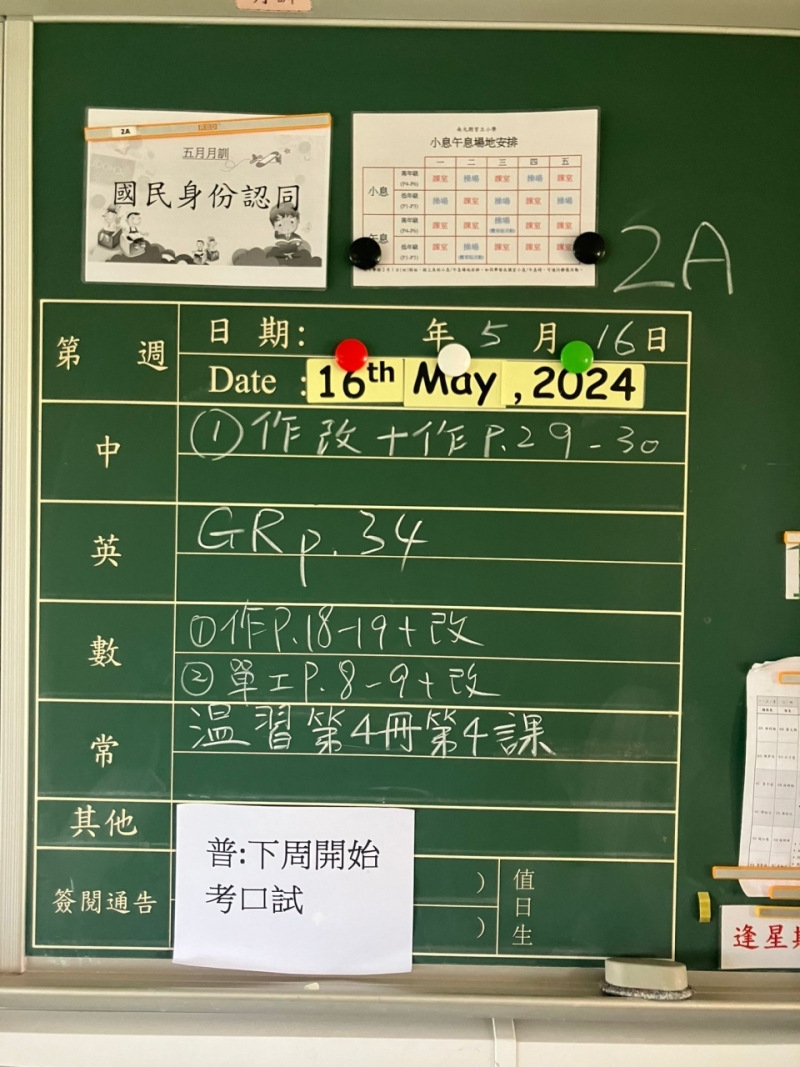 2A
五月月訓
國民身份認同
小息午息場地安排
一 二 三 四 五
小息 高年級 (P4-P6) 課室 操場 課室 操場 課室
低年級 (P1-P3) 操場 課室 操場 課室 操場
午息 高年級 (P4-P6) 課室 課室 操場 課室 課室
低年級 (P1-P3) 課室 操場 課室 課室 課室
2A
第 週
日期: 年 5 月 16 日
Date : 16th May, 2024
中
①作改+作P.29-30
英
GR p.34
數
①作P.18-19+改
②單工P.8-9+改
常
温習第4冊第4課
其他
普:下周開始
考口試
簽閱通告
)
)
值日生
逢星期